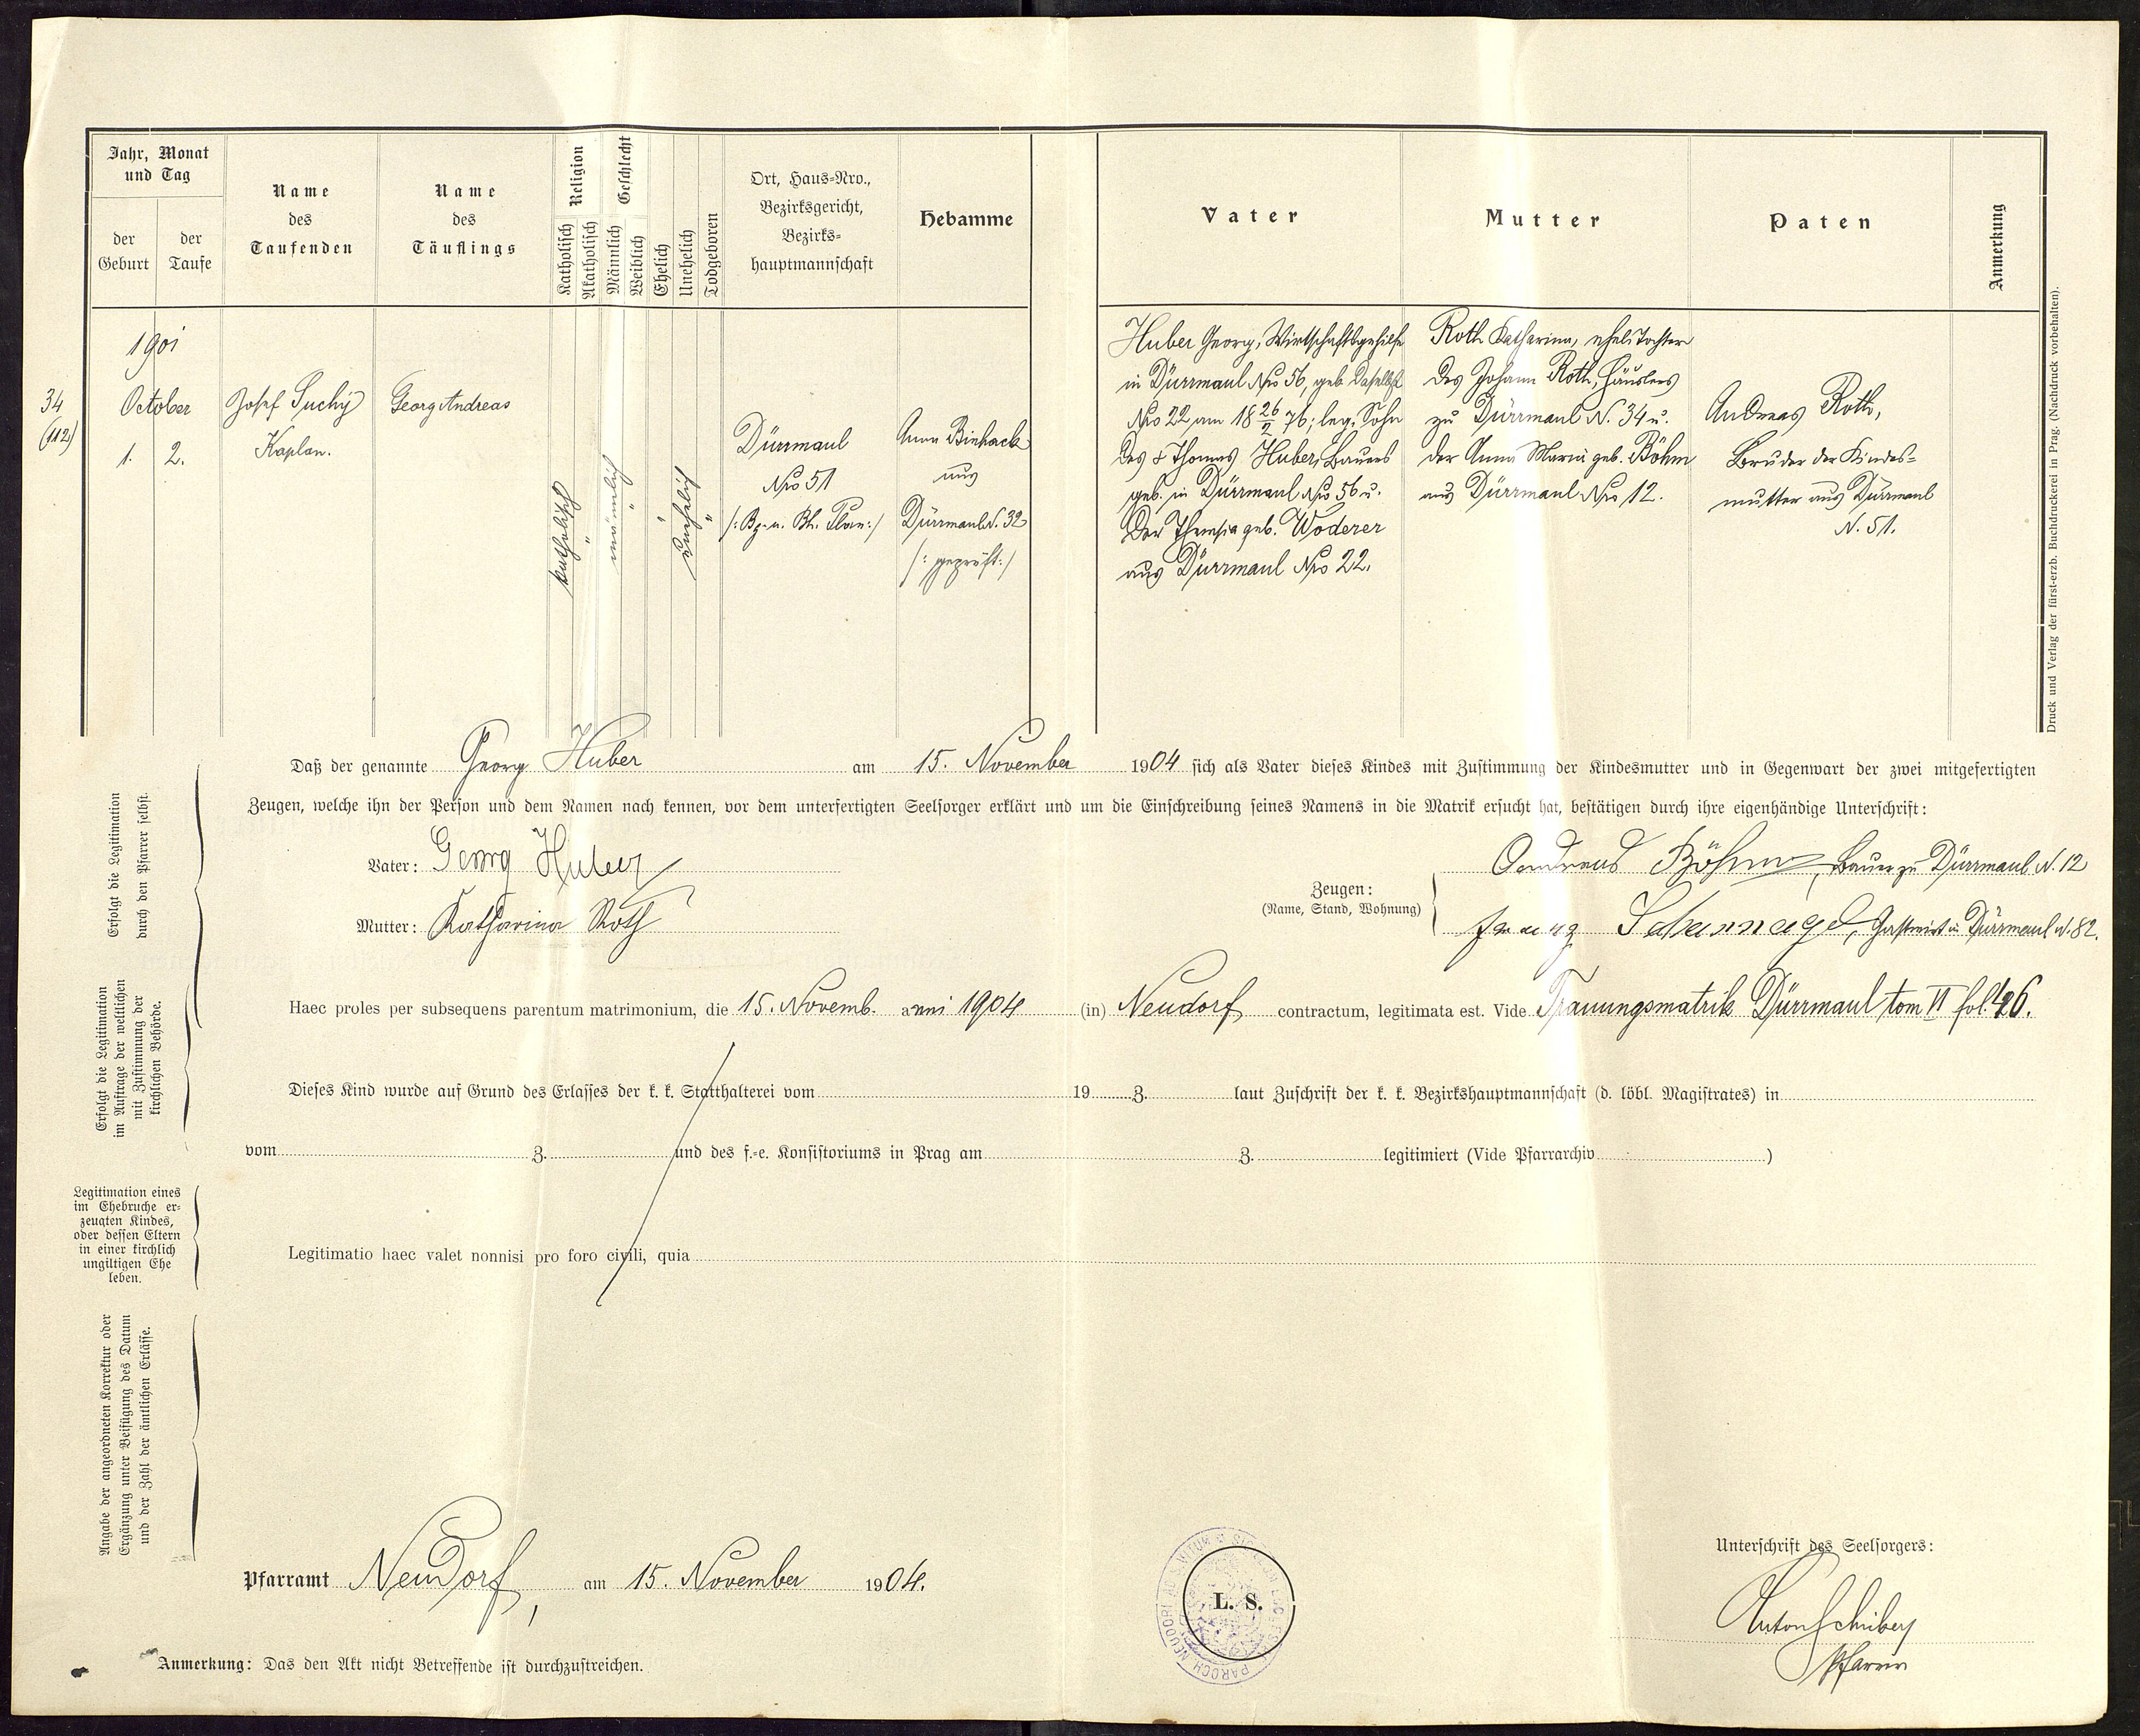 Jahr, Monat
und Tag
der
Geburt
der
Taufe
Name
des
Taufenden
Name
des
Täuflings
Religion
Katholisch
Akatholisch
Geschlecht
Männlich
Weiblich
Ehelich
Unehelich
Todgeboren
Ort, Haus-Nro.,
Bezirksgericht,
Bezirks-
hauptmannschaft
Hebamme
Vater
Mutter
Paten
Anmerkung
34
(112)
1901
October
1. 2.
Josef Suchý
Kaplan.
Georg Andreas
katholisch
männlich
unehelich
Dürrmaul
Nro 51
/: Bz. u. Bh. Plan :/
Anna Binhack
aus
Dürrmaul N. 32
/: geprüft :/
Huber Georg, Wirtschaftsgehilfe
in Dürrmaul Nro 56, geb. daselbst
Nro 22 am 18 26/2 76; leg. Sohn
des † Thomas Huber, Bauers
geb. in Dürrmaul Nro 56 u.
der Theresia geb. Woderer
aus Dürrmaul Nro 22.
Roth Katharina, ehel. Tochter
des Johann Roth, Häuslers
zu Dürrmaul N. 34 u.
der Anna Maria geb. Böhm
aus Dürrmaul Nro 12.
Andreas Roth,
Bruder der Kindes-
mutter aus Dürrmaul
N. 51.
Druck und Verlag der fürst-erzb. Buchdruckerei in Prag. (Nachdruck vorbehalten).
Daß der genannte Georg Huber am 15. November 1904 sich als Vater dieses Kindes mit Zustimmung der Kindesmutter und in Gegenwart der zwei mitgefertigten
Zeugen, welche ihn der Person und dem Namen nach kennen, vor dem unterfertigten Seelsorger erklärt und um die Einschreibung seines Namens in die Matrik ersucht hat, bestätigen durch ihre eigenhändige Unterschrift:
Erfolgt die Legitimation
durch den Pfarrer selbst.
Vater: Georg Huber
Mutter: Katharina Roth
Zeugen:
(Name, Stand, Wohnung)
Andreas Böhm, Bauer zu Dürrmaul N. 12
Franz Schannagel, Gastwirt in Dürrmaul N. 82.
Erfolgt die Legitimation
im Auftrage der weltlichen
mit Zustimmung der
kirchlichen Behörde.
Haec proles per subsequens parentum matrimonium, die 15. Novemb. anni 1904 (in) Neudorf contractum, legitimata est. Vide Trauungsmatrik Dürrmaul tom VI fol. 126.
Dieses Kind wurde auf Grund des Erlasses der k. k. Statthalterei vom 19 Z. laut Zuschrift der k. k. Bezirkshauptmannschaft (d. löbl. Magistrates) in
vom Z. und des f.-e. Konsistoriums in Prag am Z. legitimiert (Vide Pfarrarchiv )
Legitimation eines
im Ehebruche er-
zeugten Kindes,
oder dessen Eltern
in einer kirchlich
ungiltigen Ehe
leben.
Legitimatio haec valet nonnisi pro foro civili, quia
Angabe der angeordneten Korrektur oder
Ergänzung unter Beifügung des Datum
und der Zahl der ämtlichen Erlässe.
Pfarramt Neudorf, am 15. November 1904.
L. S.
Unterschrift des Seelsorgers:
Anton
Pfarrer
Anmerkung: Das den Akt nicht Betreffende ist durchzustreichen.